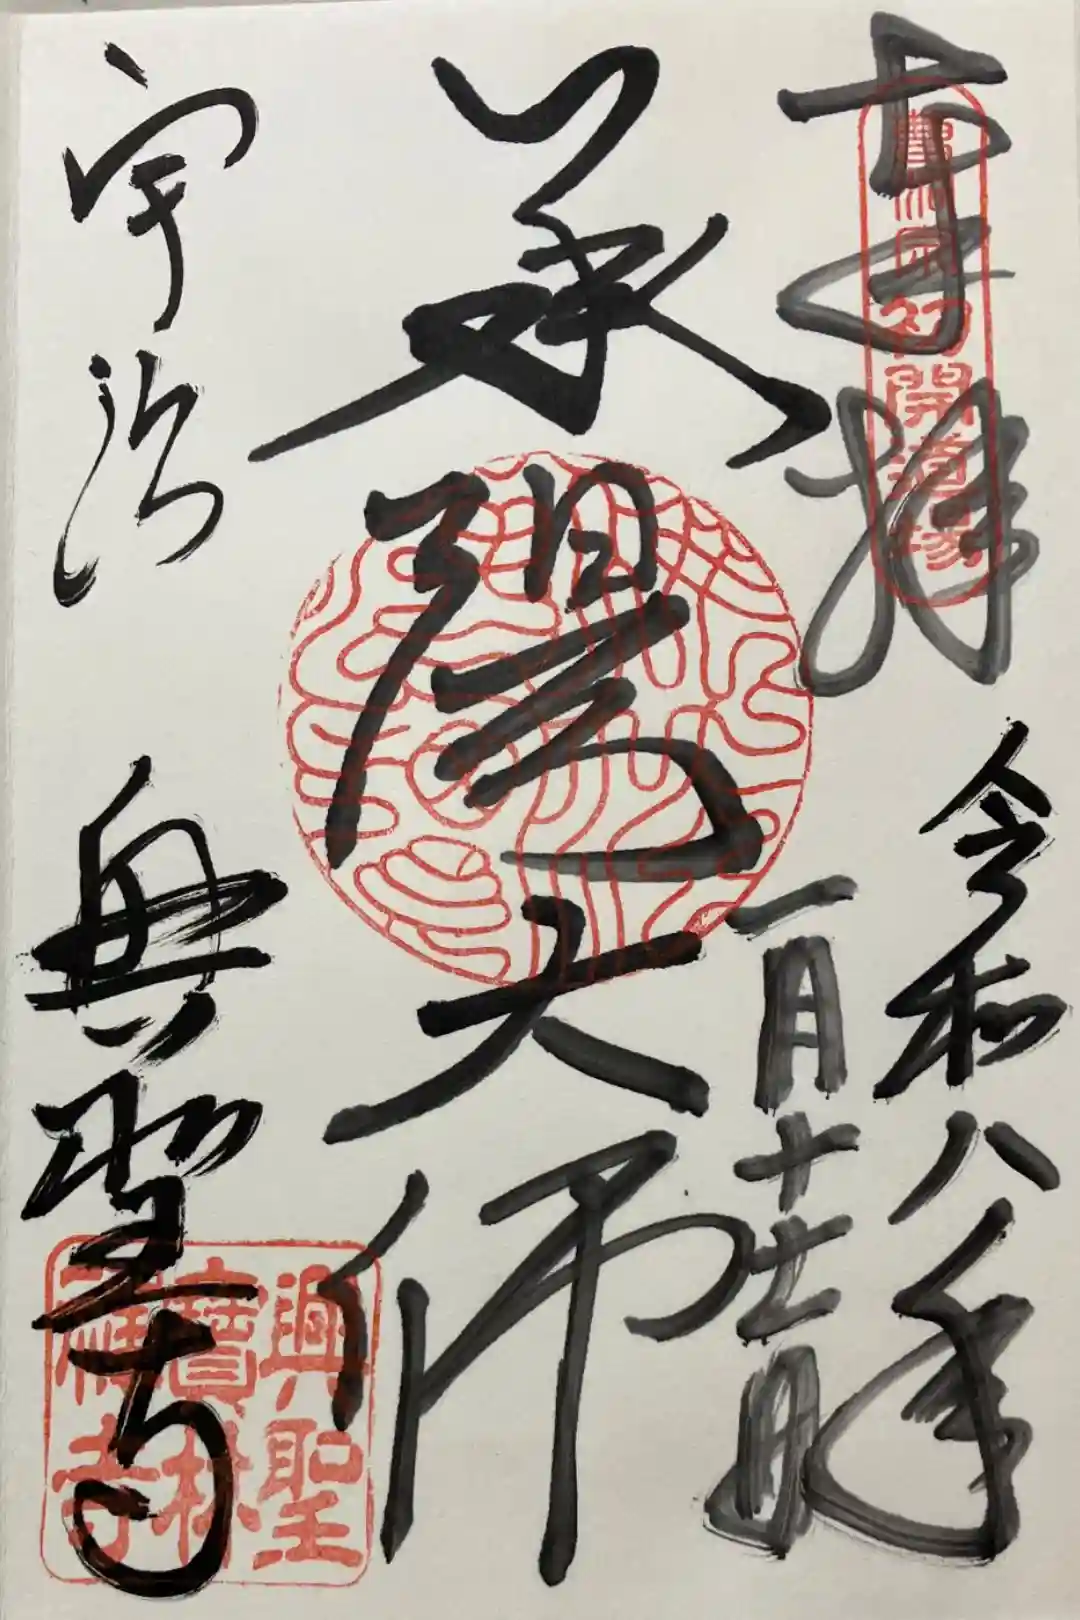 奉拝
曹洞宗初開道場
令和八年
一月十七日
承陽大師
宇治
興聖寺
興聖
寶林
禅寺